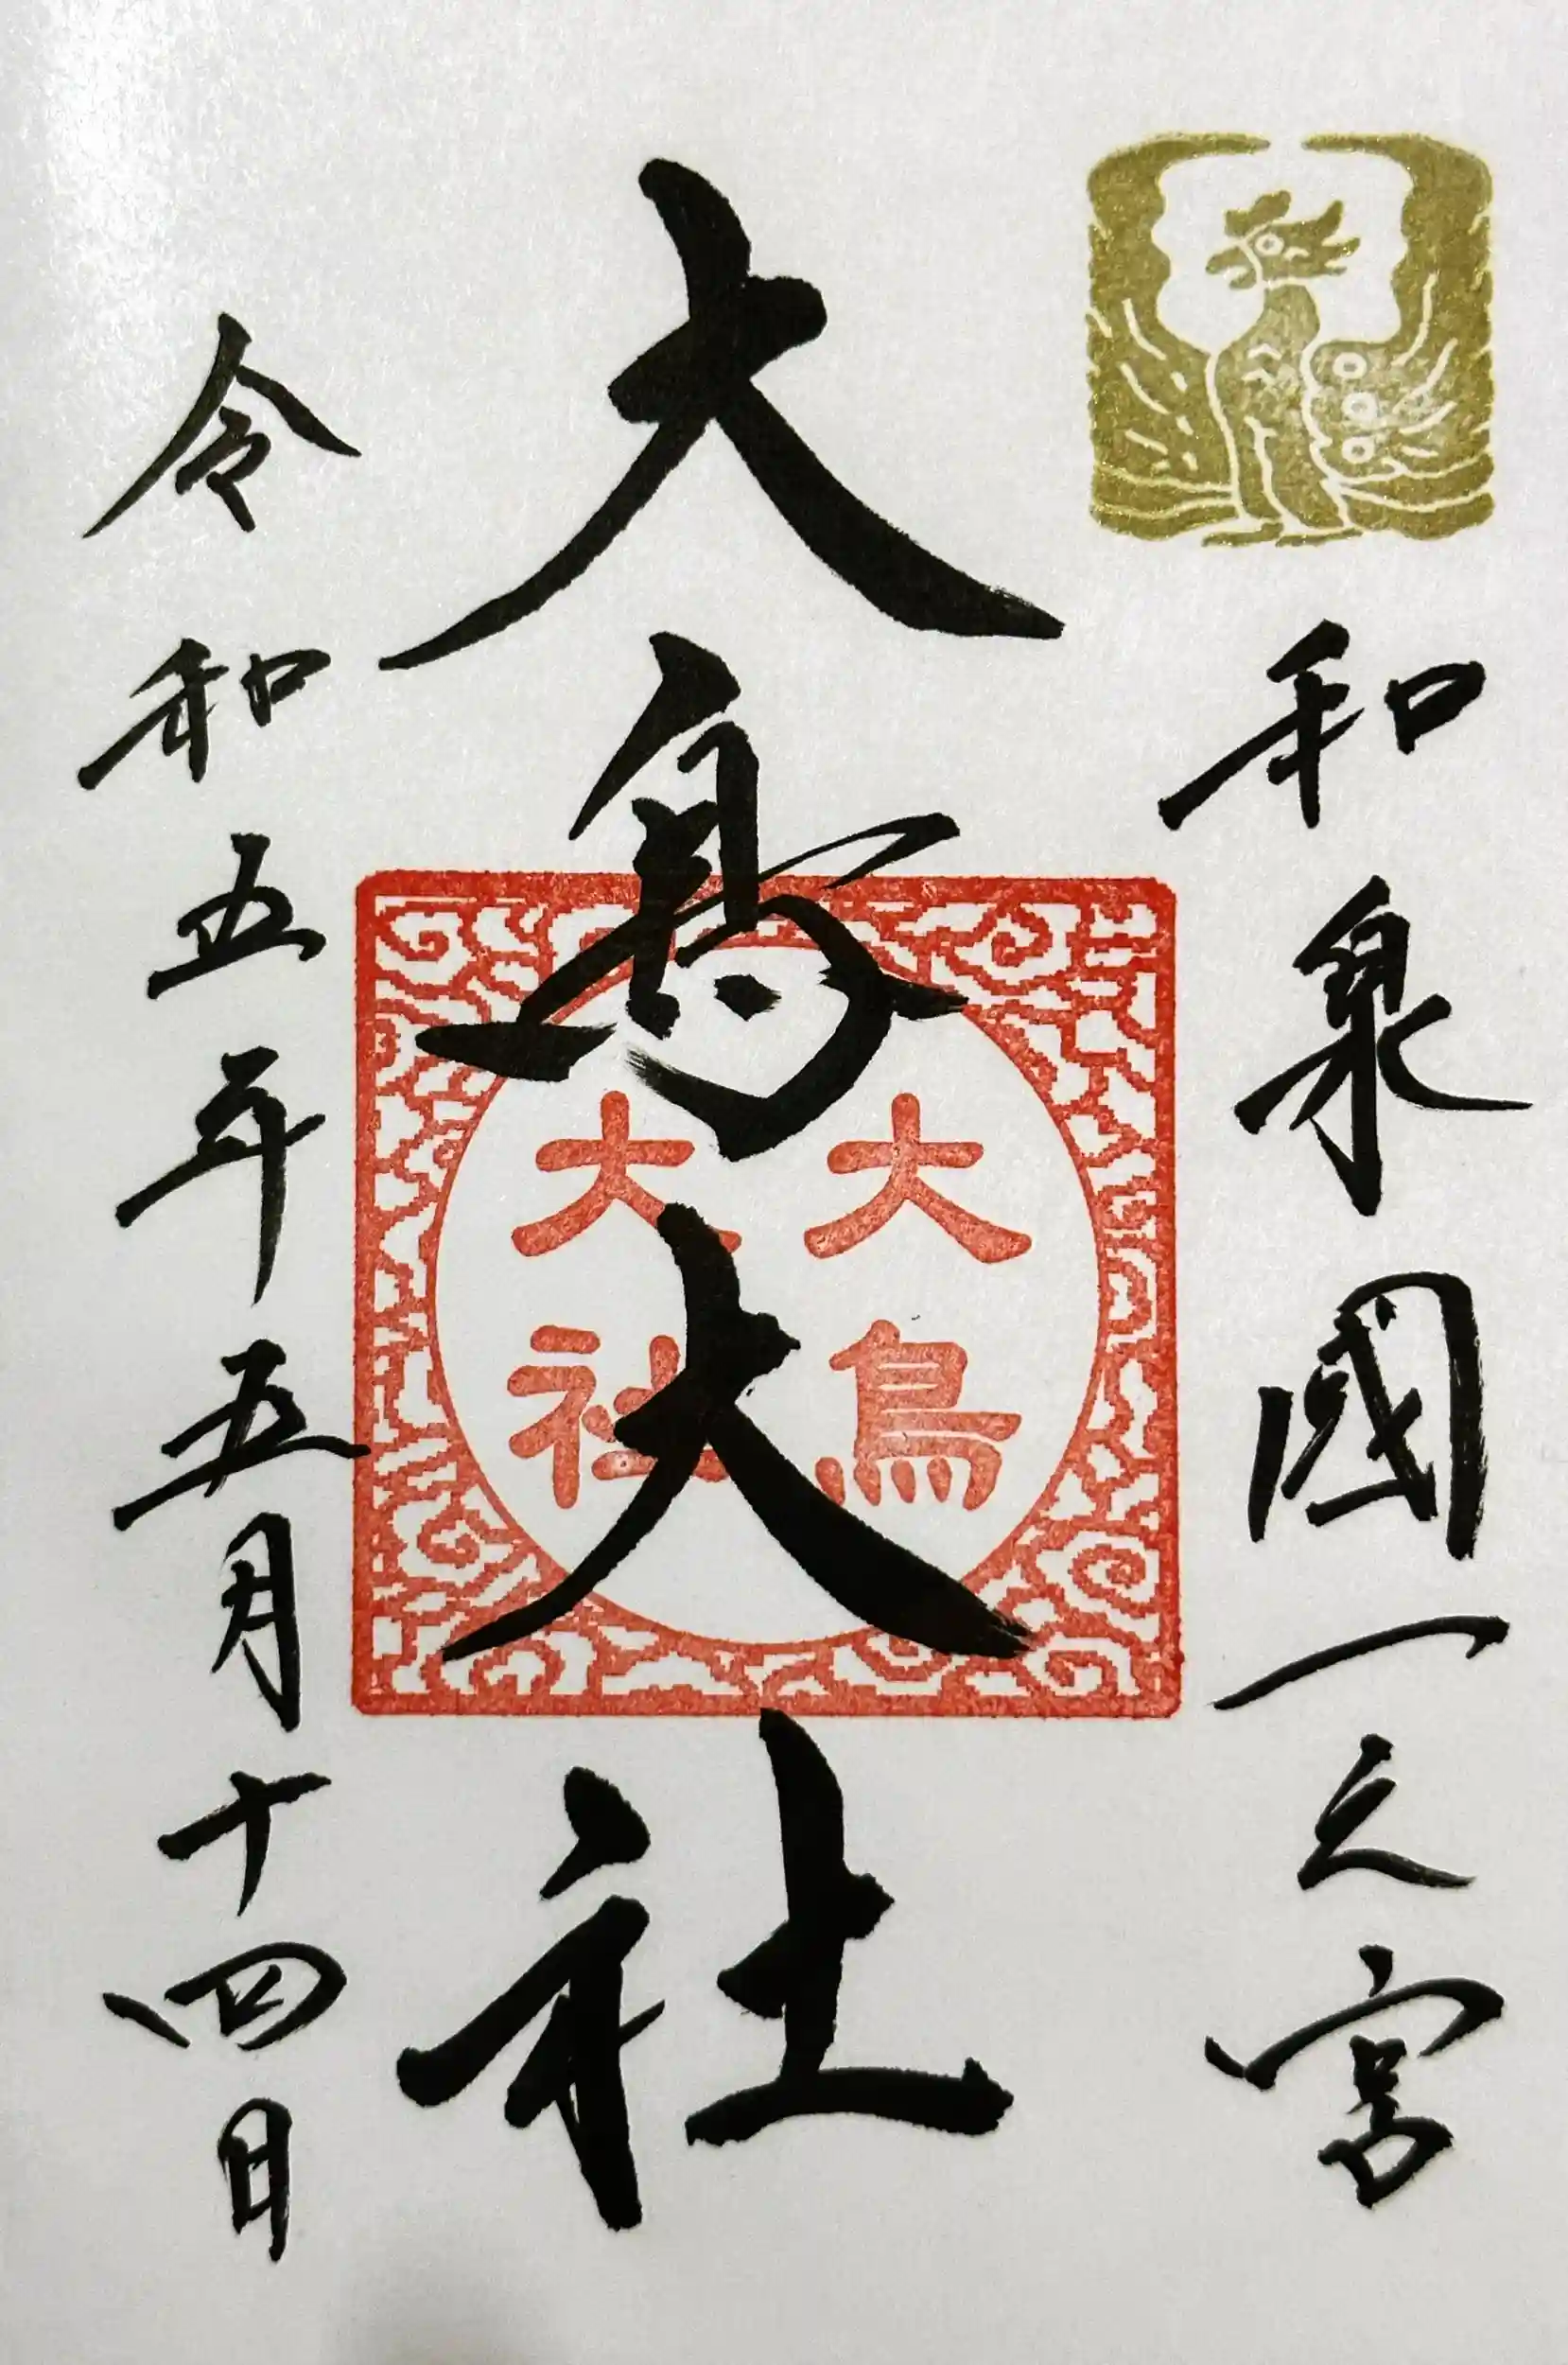 和泉國一之宮
大鳥大社
大鳥
大社
令和五年五月十四日